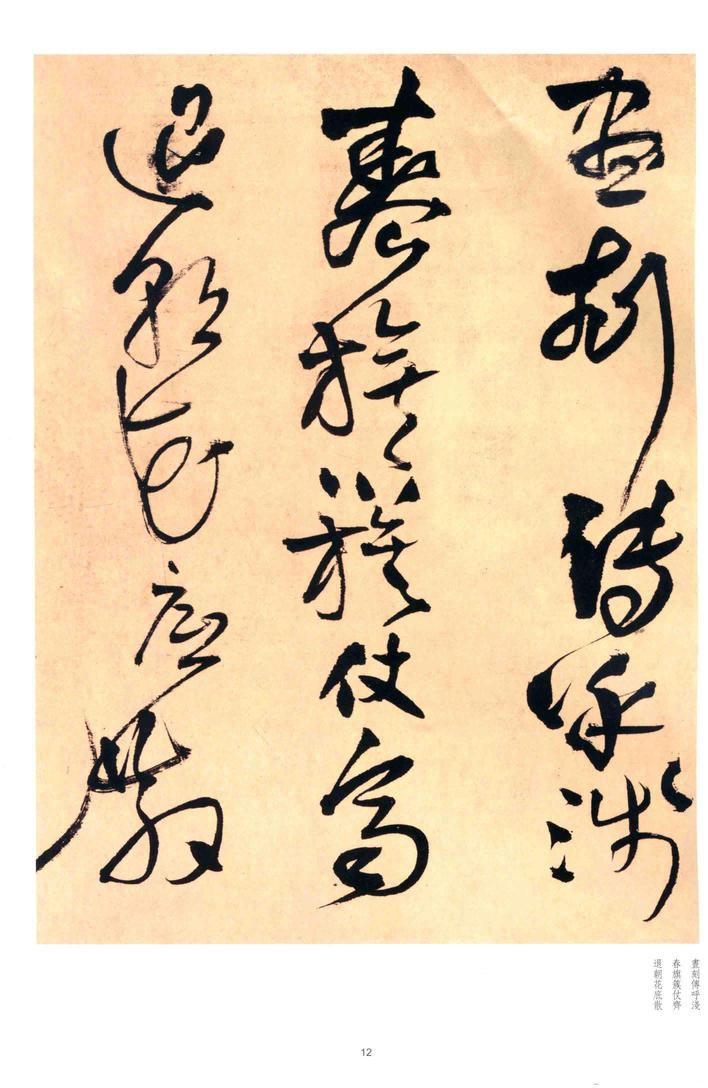 晝刻傳呼淺
春旗簇仗齊
退朝花底散
晝刻傳呼淺
春旗簇仗齊
退朝花底散
12